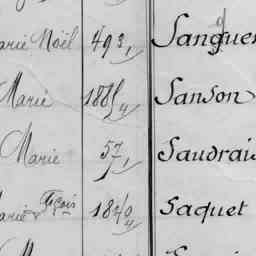 arie Noël 493/1 Sanguer
Marie 188/4 Sanson
Marie 57/1 Saudrais
arie Fçois 18 Saquet